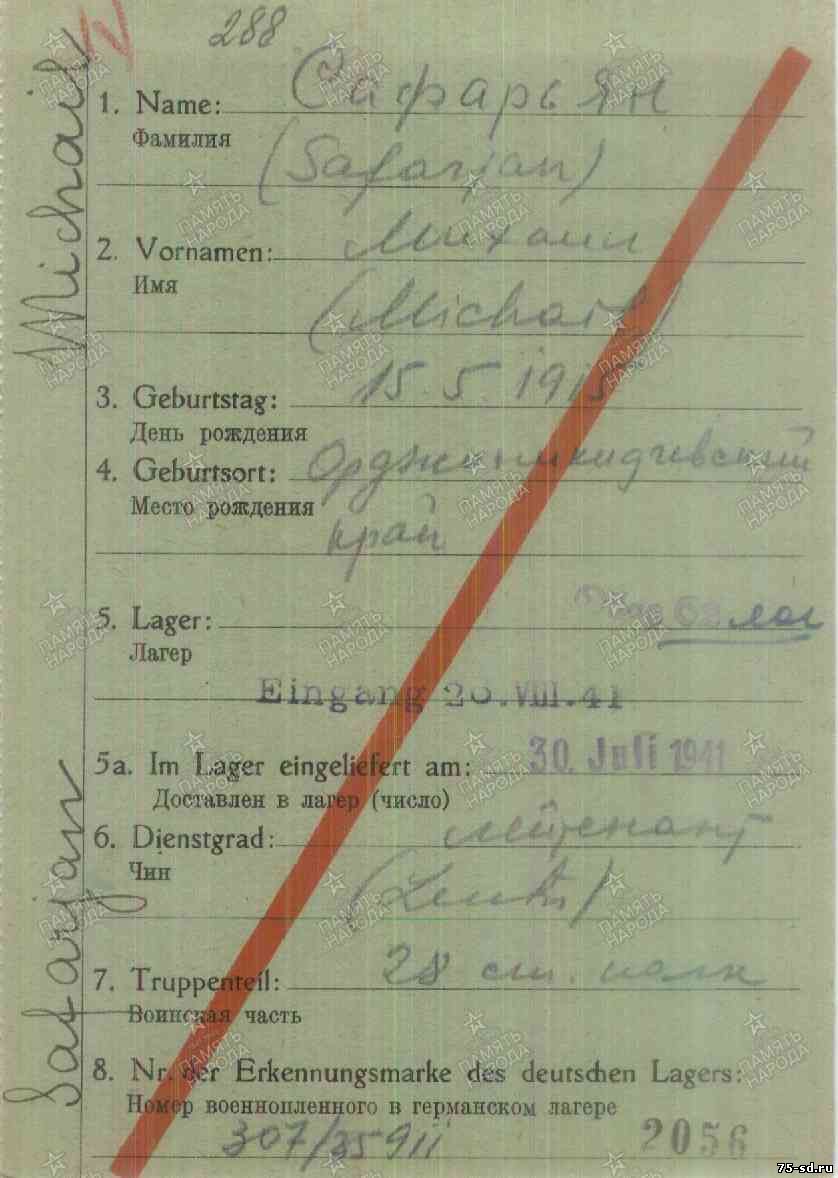 288
1. Name: Сафарьян
Фамилия
(Safarjan)
2. Vornamen: Михаил
Имя
(Michail)
3. Geburtstag: 15.5.1915
День рождения
4. Geburtsort: Орджоникидзевский
Место рождения
край
5. Lager:
Лагер
Eingang 20.VIII.41
5a. Im Lager eingeliefert am: 30. Juli 1941
Доставлен в лагер (число)
6. Dienstgrad: лейтенант
Чин
(Leutn)
7. Truppenteil: 28 ст. полк
Воинская часть
8. Nr. der Erkennungsmarke des deutschen Lagers:
Номер военнопленного в германском лагере
307/35911 2056
Safarjan Michail
ПАМЯТЬ
НАРОДА
75-sd.ru